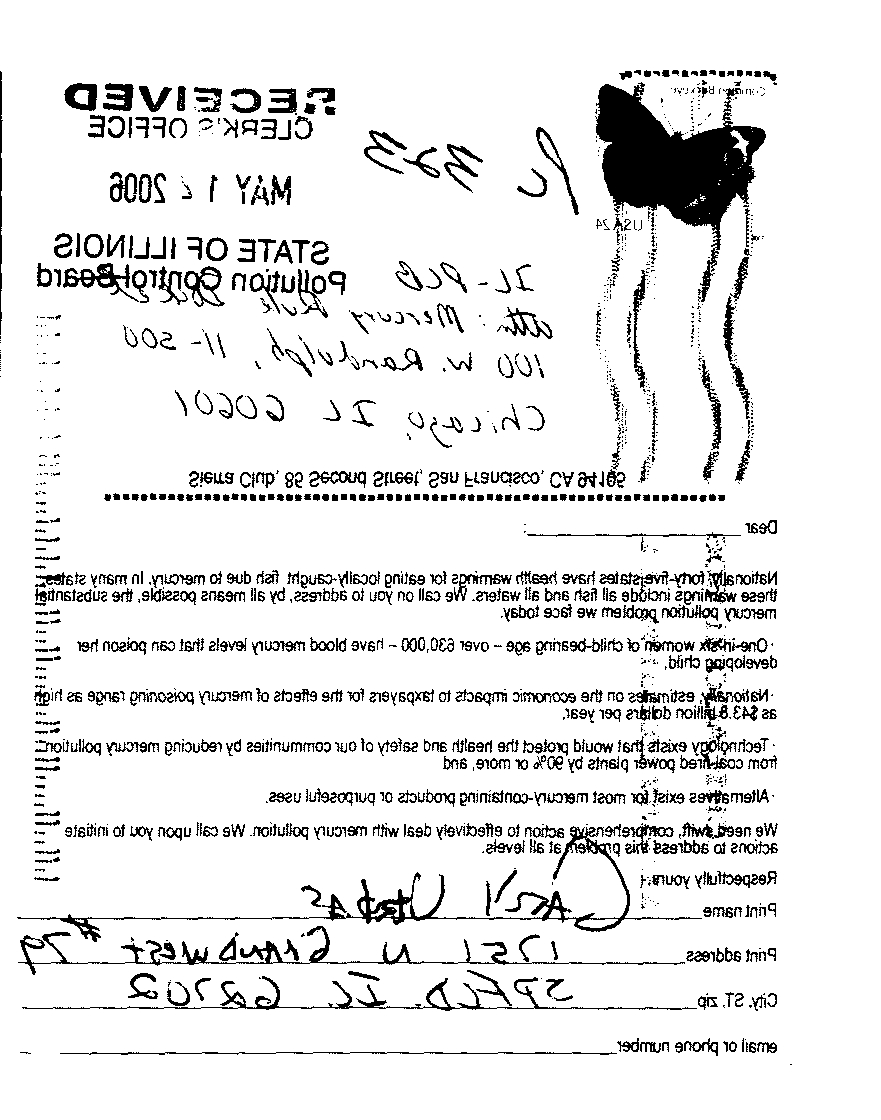 Common Buckeye
USA 24
RECEIVED
CLERK'S OFFICE
MAY 12 2006
STATE OF ILLINOIS
Pollution Control Board
PC 323
IL-PCB
attn: Mercury Rule Docket
100 W. Randolph, 11-500
Chicago, IL 60601
Sierra Club, 85 Second Street, San Francisco, CA 94105
Dear :
Nationally, forty-five states have health warnings for eating locally-caught fish due to mercury. In many states,
these warnings include all fish and all waters. We call on you to address, by all means possible, the substantial
mercury pollution problem we face today.
· One-in-six women of child-bearing age – over 630,000 – have blood mercury levels that can poison her
developing child,
· Nationally, estimates on the economic impacts to taxpayers for the effects of mercury poisoning range as high
as $43.8 billion dollars per year,
· Technology exists that would protect the health and safety of our communities by reducing mercury pollution
from coal-fired power plants by 90% or more, and
· Alternatives exist for most mercury-containing products or purposeful uses.
We need swift, comprehensive action to effectively deal with mercury pollution. We call upon you to initiate
actions to address this problem at all levels.
Respectfully yours,
Print name Caryl
Print address 1751 N GRANDWEST #79
City, ST, zip SPFLD. IL 62702
email or phone number